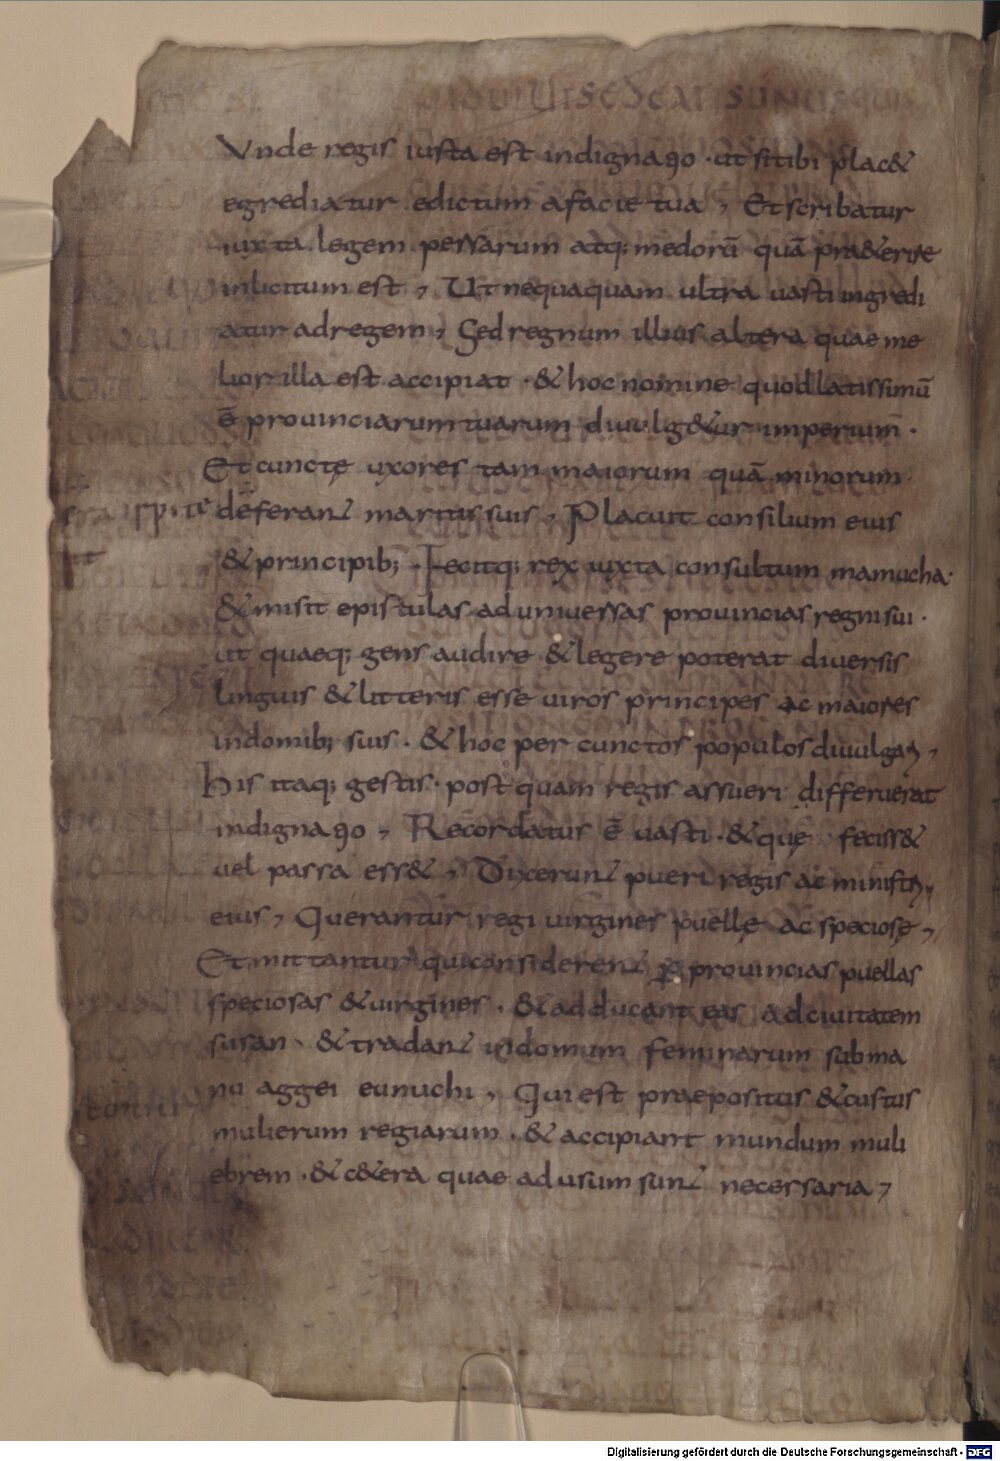 Vnde regis iusta est indignatio · ut si tibi plac&
egrediatur edictum afacie tua , Et scribatur
iuxta legem persarum atq; medorū quā praeterire
inlicitum est , Ut nequaquam ultra uasti ingredi
atur adregem , Sed regnum illius altera quae me
lior illa est accipiat · & hoc nomine quod latissimū
ē prouinciarum tuarum diuulg&ur imperium ·
Et cunctę uxores tam maiorum quā minorum
deferant maritis suis , Placuit consilium eius
& principib; · Fecitq; rex iuxta consultum mamucha·
& misit epistulas ad uniuersas prouincias regni sui ·
ut quaeq; gens audire & legere poterat diuersis
linguis & litteris esse uiros principes ac maiores
indomib; suis · & hoc per cunctos populos diuulgari ,
His itaq; gestis · post quam regis assueri differuerat
indignatio , Recordatus ē uasti · & quę feciss&
uel passa ess& , Dixerunt pueri regis ac ministri
eius , Querantur regi uirgines puellę ac speciosę ,
Et mittantur qui considerent p prouincias puellas
speciosas & uirgines · & adducant eas ad ciuitatem
susan · & tradant indomum feminarum sub ma
nu aggei eunuchi , Qui est praepositus & custus
mulierum regiarum · & accipiant mundum muli
ebrem · & c&era quae ad usum sunt necessaria ,
Digitalisierung gefördert durch die Deutsche Forschungsgemeinschaft - DFG